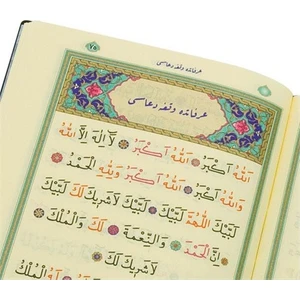 ٧٥ عرفاتده وقفه دعاسی
عرفاتده وقفه دعاسی
اَللّٰهُ اَكْبَرُ اَللّٰهُ اَكْبَرُ لَٓا اِلٰهَ اِلَّا اللّٰهُ
وَاللّٰهُ اَكْبَرُ اَللّٰهُ اَكْبَرُ وَلِلّٰهِ الْحَمْدُ
لَبَّيْكَ اَللّٰهُمَّ لَبَّيْكَ لَبَّيْكَ لَا شَرِيكَ لَكَ لَبَّيْكَ
اِنَّ الْحَمْدَ وَالنِّعْمَةَ لَكَ وَالْمُلْكَ
لَا شَرِيكَ لَكَ
لَهُ الْمُلْكُ